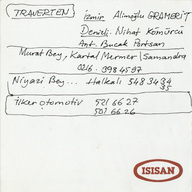 TRAVERTEN İzmir Alimoğlu GRAMERİT
Denizli: Nihat Kömürcü
Ant. Bucak Partisan
Murat Bey, Kartal Mermer / Samandıra
0216. 398 45 97
Niyazi Bey... Halkalı 548 34 34
35
İlker otomotiv 501 66 27
501 66 26
ISISAN